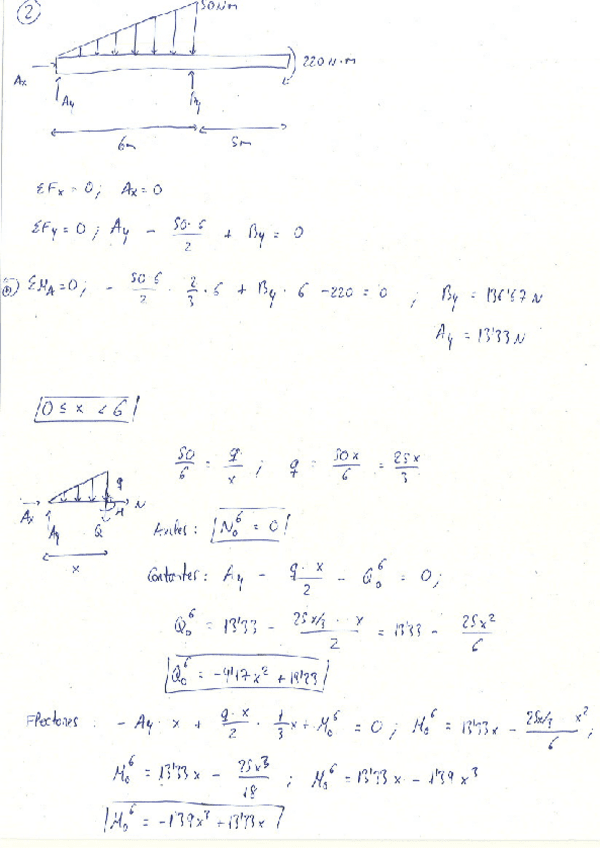 2
50 N/m
220 N·m
Ax
Ay
By
6m
5m
ΣFx = 0; Ax = 0
ΣFy = 0; Ay - 50·6/2 + By = 0
ΣMA = 0; - 50·6/2 · 2/3 · 6 + By · 6 - 220 = 0 ; By = 136'67 N
Ay = 13'33 N
0 ≤ x < 6
50/6 = q/x ; q = 50x/6 = 25x/3
q
Ax
Ay
Q
M
N
x
Axiles: N₀⁶ = 0
Cortantes: Ay - q·x/2 - Q₀⁶ = 0;
Q₀⁶ = 13'33 - 25x/3 · x/2 = 13'33 - 25x²/6
Q₀⁶ = -4'17x² + 13'33
Flectores: - Ay · x + q·x/2 · 1/3x + M₀⁶ = 0; M₀⁶ = 13'33x - 25x/3 · x²/6;
M₀⁶ = 13'33x - 25x³/18 ; M₀⁶ = 13'33x - 1'39x³
M₀⁶ = -1'39x³ + 13'33x